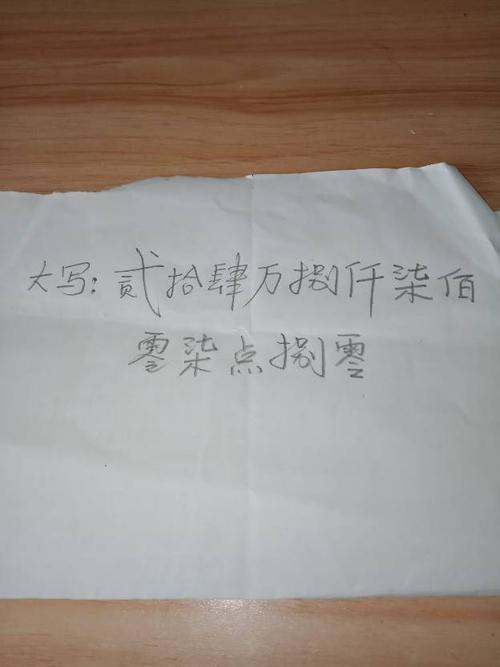 大写:贰拾肆万捌仟柒佰
零柒点捌零